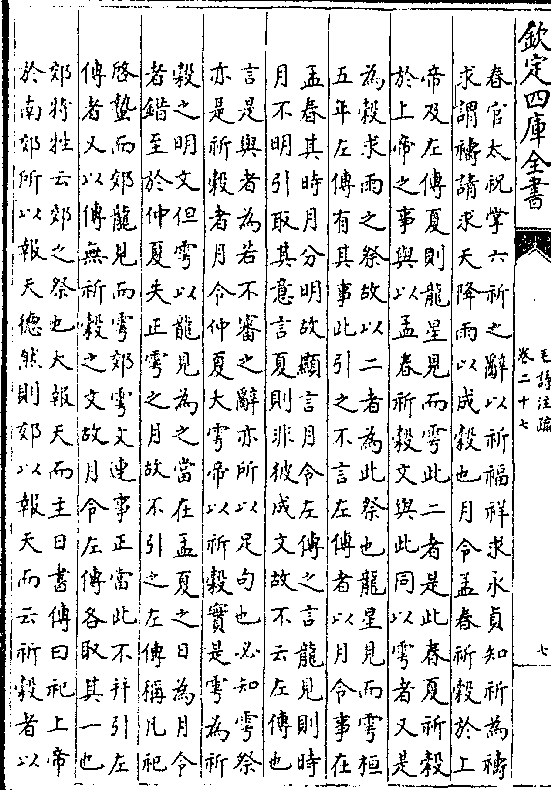 欽定四庫全書
毛詩注疏
卷二十七
七
春官太祝掌六祈之辭以祈福祥求永貞知祈為禱
求謂禱請求天降雨以成穀也月令孟春祈穀於上
帝及左傳夏則龍星見而雩此二者是此春夏祈穀
於上帝之事與以孟春祈穀文與此同以雩者又是
為穀求雨之祭故以二者為此祭也龍星見而雩桓
五年左傳有其事此引之不言左傳者以月令事在
孟春其時月分明故顯言月令左傳之言龍見則時
月不明引取其意言夏則非彼成文故不云左傳也
言是與者為若不審之辭亦所以足句也必知雩祭
亦是祈穀者月令仲夏大雩帝以祈穀實是雩為祈
穀之明文但雩以龍見為之當在孟夏之日為月令
者錯至於仲夏失正雩之月故不引之左傳稱凡祀
啓蟄而郊龍見而雩郊雩文連事正當此不并引左
傳者又以傳無祈穀之文故月令左傳各取其一也
郊特牲云郊之祭也大報天而主日書傳曰祀上帝
於南郊所以報天德然則郊以報天而云祈穀者以